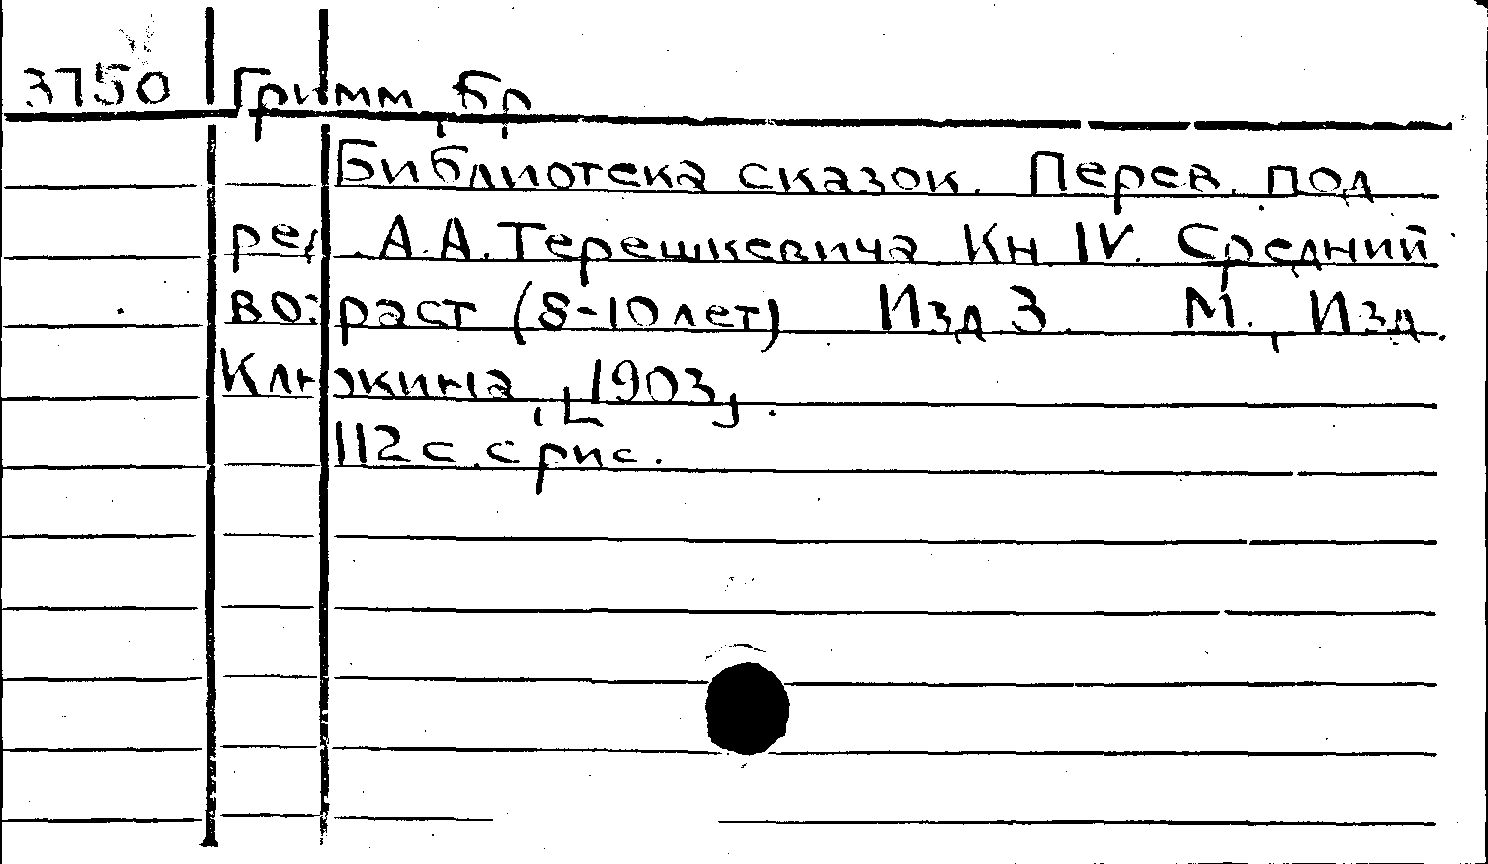 3750 Гримм, бр
Библиотека сказок. Перев. под
ред. А.А.Терешкевича Кн IV. Средний
возраст (8-10 лет) Изд 3. М., Изд.
Клюкина, [1903].
112 с. с рис.